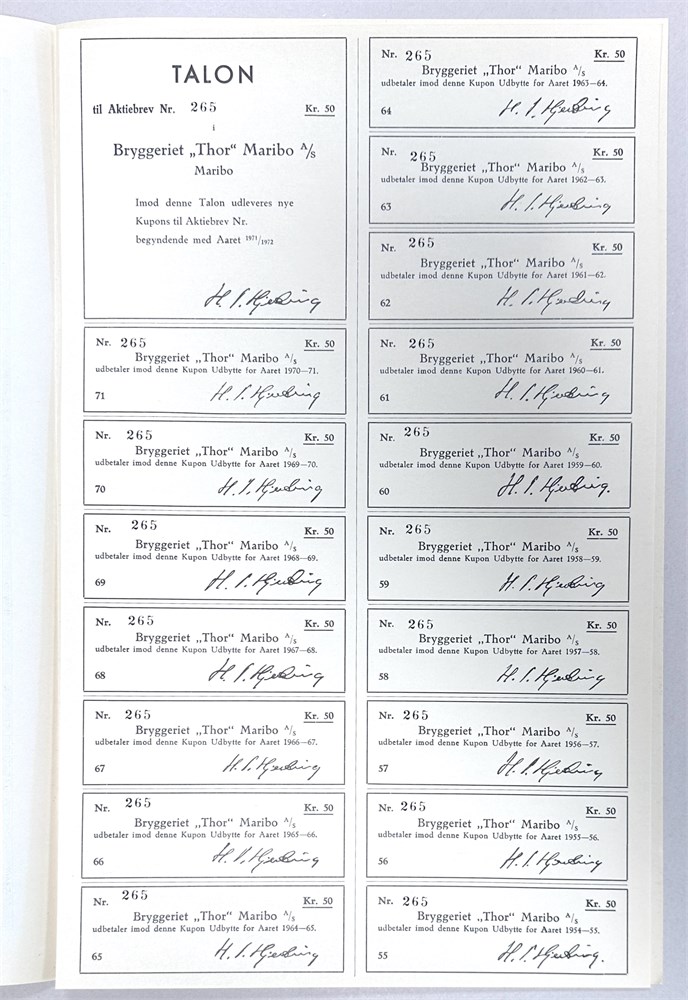 TALON
til Aktiebrev Nr. 265 Kr. 50
i
Bryggeriet „Thor“ Maribo A/S
Maribo
Imod denne Talon udleveres nye
Kupons til Aktiebrev Nr.
begyndende med Aaret 1971/1972
Nr. 265 Kr. 50
Bryggeriet „Thor“ Maribo A/S
udbetaler imod denne Kupon Udbytte for Aaret 1970—71.
71
Nr. 265 Kr. 50
Bryggeriet „Thor“ Maribo A/S
udbetaler imod denne Kupon Udbytte for Aaret 1969—70.
70
Nr. 265 Kr. 50
Bryggeriet „Thor“ Maribo A/S
udbetaler imod denne Kupon Udbytte for Aaret 1968—69.
69
Nr. 265 Kr. 50
Bryggeriet „Thor“ Maribo A/S
udbetaler imod denne Kupon Udbytte for Aaret 1967—68.
68
Nr. 265 Kr. 50
Bryggeriet „Thor“ Maribo A/S
udbetaler imod denne Kupon Udbytte for Aaret 1966—67.
67
Nr. 265 Kr. 50
Bryggeriet „Thor“ Maribo A/S
udbetaler imod denne Kupon Udbytte for Aaret 1965—66.
66
Nr. 265 Kr. 50
Bryggeriet „Thor“ Maribo A/S
udbetaler imod denne Kupon Udbytte for Aaret 1964—65.
65
Nr. 265 Kr. 50
Bryggeriet „Thor“ Maribo A/S
udbetaler imod denne Kupon Udbytte for Aaret 1963—64.
64
Nr. 265 Kr. 50
Bryggeriet „Thor“ Maribo A/S
udbetaler imod denne Kupon Udbytte for Aaret 1962—63.
63
Nr. 265 Kr. 50
Bryggeriet „Thor“ Maribo A/S
udbetaler imod denne Kupon Udbytte for Aaret 1961—62.
62
Nr. 265 Kr. 50
Bryggeriet „Thor“ Maribo A/S
udbetaler imod denne Kupon Udbytte for Aaret 1960—61.
61
Nr. 265 Kr. 50
Bryggeriet „Thor“ Maribo A/S
udbetaler imod denne Kupon Udbytte for Aaret 1959—60.
60
Nr. 265 Kr. 50
Bryggeriet „Thor“ Maribo A/S
udbetaler imod denne Kupon Udbytte for Aaret 1958—59.
59
Nr. 265 Kr. 50
Bryggeriet „Thor“ Maribo A/S
udbetaler imod denne Kupon Udbytte for Aaret 1957—58.
58
Nr. 265 Kr. 50
Bryggeriet „Thor“ Maribo A/S
udbetaler imod denne Kupon Udbytte for Aaret 1956—57.
57
Nr. 265 Kr. 50
Bryggeriet „Thor“ Maribo A/S
udbetaler imod denne Kupon Udbytte for Aaret 1955—56.
56
Nr. 265 Kr. 50
Bryggeriet „Thor“ Maribo A/S
udbetaler imod denne Kupon Udbytte for Aaret 1954—55.
55